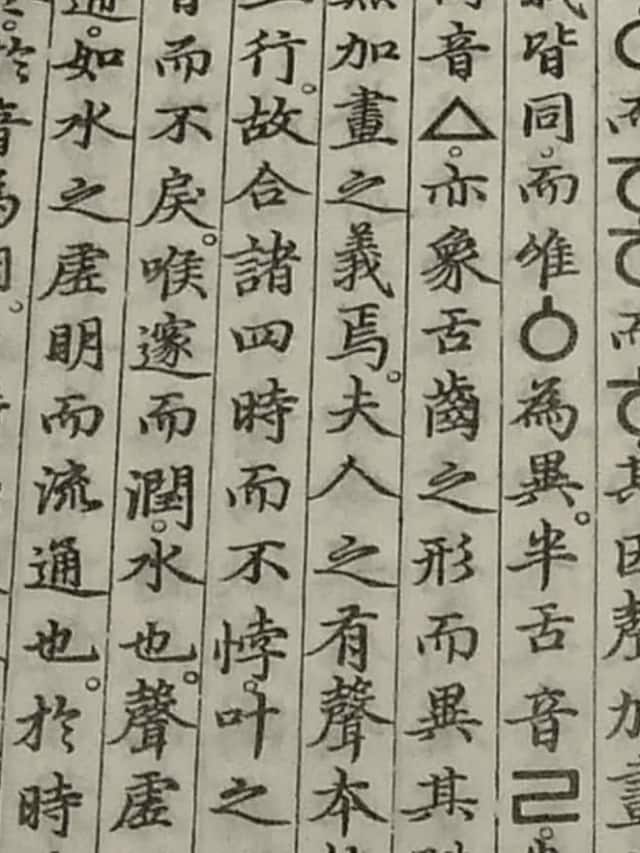 ㅇ而ㆆㆆ而ㅎ其因聲加畫
皆同。而唯ㆁ為異。半舌音ㄹ。
音ㅿ。亦象舌齒之形而異其
加畫之義焉。夫人之有聲本
行。故合諸四時而不悖。叶之
而不戾。喉邃而潤。水也。聲虛
通。如水之虛明而流通也。於時
於音為